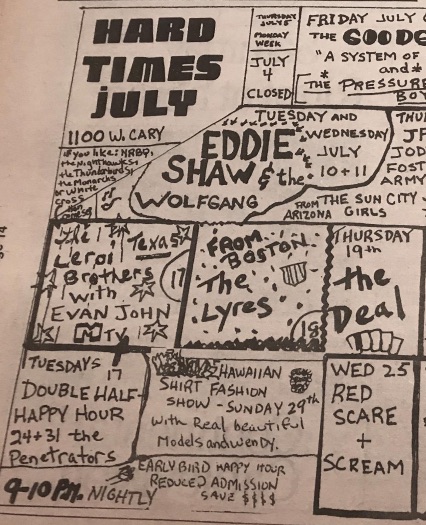 HARD
TIMES
JULY
1100 W. CARY
THURSDAY
JULY 5
MONDAY
WEEK
JULY
4
CLOSED
FRIDAY JULY
THE GOODE
"A SYSTEM OF
and*
*THE PRESSURE
BOY
if you like: NRBQ,
the Nighthawks,
the Thunderbirds,
the Monarchs
or White
Cross
TUESDAY AND
WEDNESDAY
JULY
10+11
EDDIE
SHAW & the
WOLFGANG
FROM
ARIZONA
THE SUN CITY
GIRLS
THU
JF
JOD
FOST
ARMY
The
Leroi
Brothers
Texas
17
with
EVAN JOHN
MTV
FROM
BOSTON
The
Lyres
18
THURSDAY
19th
the
Deal
TUESDAYS
17
DOUBLE HALF-
HAPPY HOUR
24+31 the
Penetrators
HAWAIIAN
SHIRT FASHION
SHOW - SUNDAY 29th
with Real beautiful
Models and Wendy.
WED 25
RED
SCARE
+
SCREAM
9-10 P.M. NIGHTLY
EARLY BIRD HAPPY HOUR
REDUCED ADMISSION
SAVE $$$$